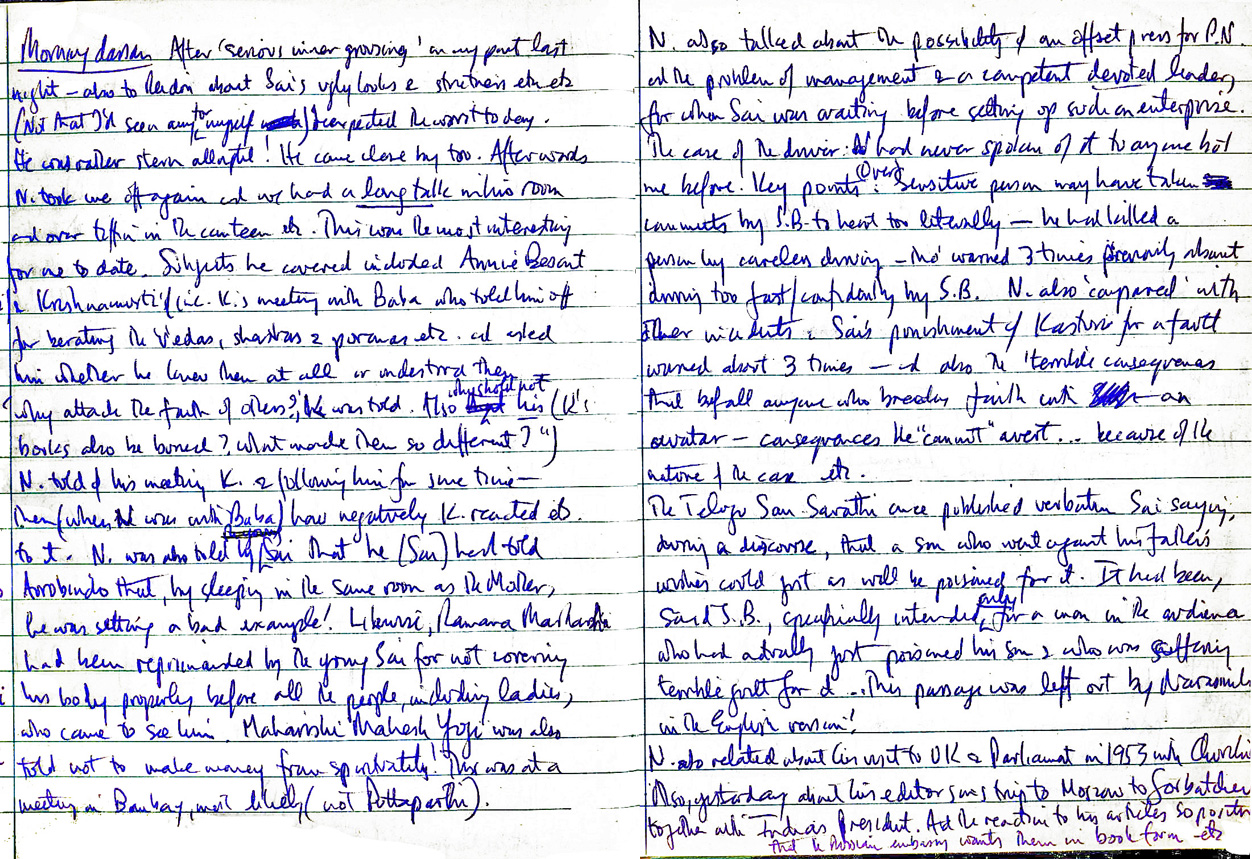 Morning darshan After 'serious inner grousing' on my part last
night – also to Reidun about Sai's ugly looks & strictness etc etc
(Not that I'd seen any for myself) I expected the worst today.
He was rather stern allright! He came close by too. Afterwards
N. took me off again and we had a long talk in his room
and over tiffin in the canteen etc. This was the most interesting
for me to date. Subjects he covered included Annie Besant
Krishnamurti (inc. K's meeting with Baba who told him off
for berating the Vedas, shastras & puranas etc. and asked
him whether he knew them at all or understood them
why attack the faith of others?, K was told. Also why should not his (K's
books also be burned? What made them so different?")
N. told of his meeting K. & following him for some time –
then (when N was with Baba) how negatively K. reacted etc.
to it. N. was also told by Sai that he (Sai) had told
Aurobindo that, by sleeping in the same room as the Mother,
he was setting a bad example! Likewise, Ramana Maharshi
had been reprimanded by the young Sai for not covering
his body properly before all the people, including ladies,
who came to see him. Maharishi Mahesh Yogi was also
told not to make money from spirituality! This was at a
meeting in Bombay, most likely (not Puttaparthi).
N. also talked about the possibility of an offset press for P.N.
and the problem of management & a competent devoted leader,
for whom Sai was awaiting before setting up such an enterprise.
The case of the driver: N had never spoken of it to anyone but
me before. Key points: Over sensitive person may have taken
comments by S.B. to heart too literally – he had killed a
person by careless driving – tho' warned 3 times previously about
driving too fast/confidently by S.B. N. also 'compared' with
other incidents: Sai's punishment of Kasturi for a fault
warned about 3 times – and also the 'terrible consequences
that befall anyone who breaks faith with an
avatar – consequences He "cannot" avert... because of the
nature of the case etc.
The Telugu San. Sarathi once published verbatim Sai saying,
during a discourse, that a son who went against his father's
wishes could just as well be poisoned for it. It had been,
said S.B., specifically intended only for a man in the audience
who had actually just poisoned his son & who was suffering
terrible guilt for it... This passage was left out by
in the English version!
N. also related about his visit to UK & Parliament in 1953 with
Also, yesterday about his editor son's trip to Moscow to Gorbatchev
together with India's President. And the reaction to his articles so positive
that the Russian embassy wants them in book form – etc